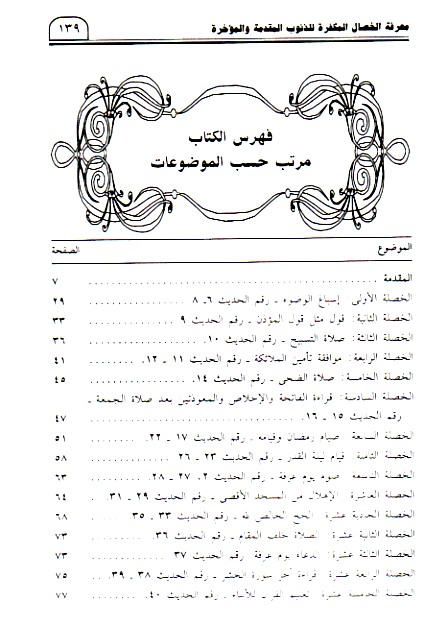 معرفة الخصال المكفرة للذنوب المقدمة والمؤخرة
١٣٩
فهرس الكتاب
مرتب حسب الموضوعات
الموضوع الصفحة
المقدمة ٧
الخصلة الأولى: إسباغ الوضوء ـ رقم الحديث ٦ـ ٨ ٢٩
الخصلة الثانية: قول مثل قول المؤذن ـ رقم الحديث ٩ ٣٣
الخصلة الثالثة: صلاة التسبيح ـ رقم الحديث ١٠ ٣٦
الخصلة الرابعة: موافقة تأمين الملائكة ـ رقم الحديث ١١ ـ ١٢ ٤١
الخصلة الخامسة: صلاة الضحى ـ رقم الحديث ١٤ ٤٥
الخصلة السادسة: قراءة الفاتحة والإخلاص والمعوذتين بعد صلاة الجمعة ـ
رقم الحديث ١٥ ـ ١٦ ٤٧
الخصلة السابعة صيام رمضان وقيامه ـ رقم الحديث ١٧ ـ ٢٢ ٥١
الخصلة الثامنة: قيام ليلة القدر ـ رقم الحديث ٢٣ ـ ٢٦ ٥٨
الخصلة التاسعة صوم يوم عرفة ـ رقم الحديث ٢، ٢٧ ـ ٢٨ ٦٣
الخصلة العاشرة الإهلال من المسجد الأقصى ـ رقم الحديث ٢٩ ـ ٣١ ٦٤
الخصلة الحادية عشرة: الحج الخالص لله ـ رقم الحديث ٣٣ ـ ٣٥ ٦٨
الخصلة الثانية عشرة: الصلاة خلف المقام ـ رقم الحديث ٣٦ ٧٣
الخصلة الثالثة عشرة: الدعاء يوم عرفة ـ رقم الحديث ٣٧ ٧٣
الخصلة الرابعة عشرة: قراءة آخر سورة الحشر ـ رقم الحديث ٣٨ ـ ٣٩ ٧٥
الخصلة الخامسة عشرة: تعليم القرآن للأبناء ـ رقم الحديث ٤٠ ٧٧